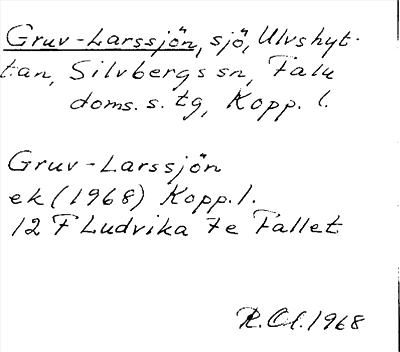 Gruv-Larssjön, sjö, Ulvshyt-
tan, Silvbergs sn, Falu
doms. s. tg, Kopp. l.
Gruv-Larssjön
ek (1968) Kopp. l.
12 F Ludvika 7e Fallet
R.Cl. 1968